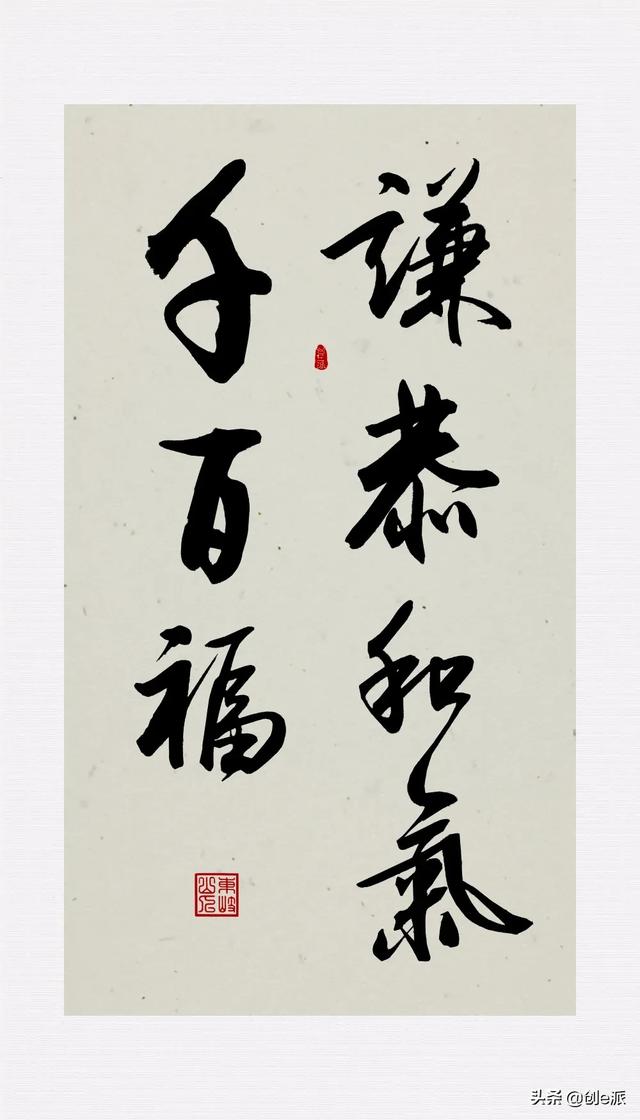 謙恭和氣
千百福
頭条 @创e派